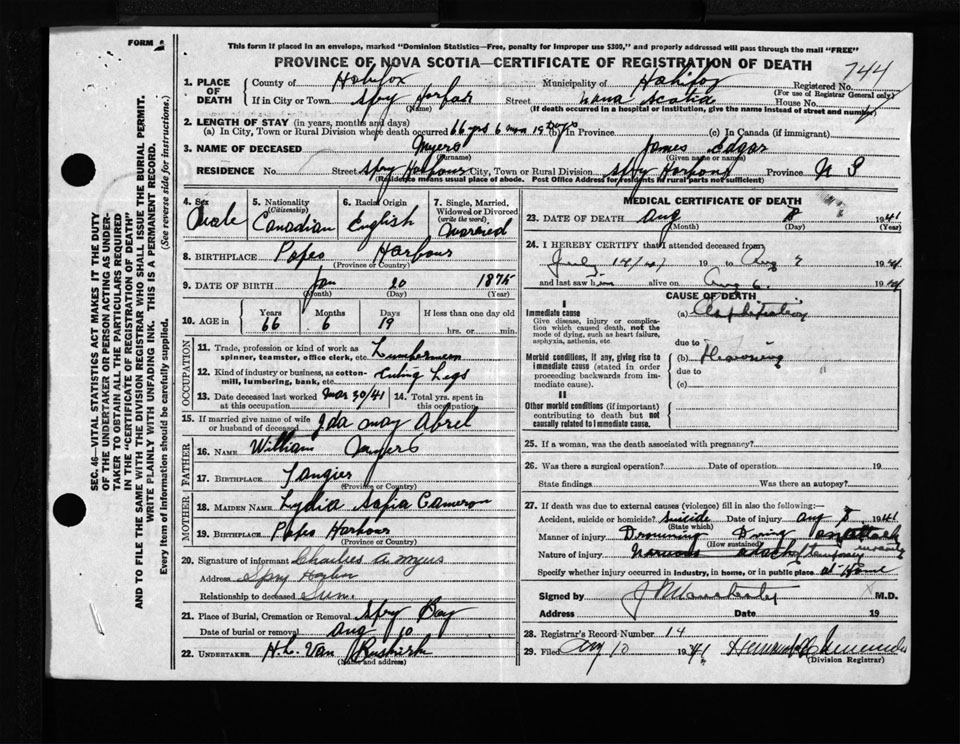 FORM 2
This form if placed in an envelope, marked "Dominion Statistics—Free, penalty for improper use $300," and properly addressed will pass through the mail "FREE"
PROVINCE OF NOVA SCOTIA—CERTIFICATE OF REGISTRATION OF DEATH
744
1. PLACE OF DEATH
County of Halifax Municipality of Halifax Registered No.
(For use of Registrar General only)
If in City or Town Spry Harbor Street Nova Scotia House No.
(Name) (If death occurred in a hospital or institution, give the name instead of street and number)
2. LENGTH OF STAY (in years, months and days)
(a) In City, Town or Rural Division where death occurred 66 yrs 6 mon 19 days (b) In Province (c) In Canada (if immigrant)
3. NAME OF DECEASED Myers James Edgar
(Surname) (Given name or names)
RESIDENCE No. Street Spry Harbour City, Town or Rural Division Spry Harbour Province N S
(Residence means usual place of abode. Post Office Address for residents in rural parts not sufficient)
4. Sex Male
5. Nationality (Citizenship) Canadian
6. Racial Origin English
7. Single, Married, Widowed or Divorced (write the word) Married
8. BIRTHPLACE Popes Harbour
(Province or Country)
9. DATE OF BIRTH Jan 20 1875
(Month) (Day) (Year)
10. AGE in Years 66 Months 6 Days 19 If less than one day old
hrs. or min.
OCCUPATION
11. Trade, profession or kind of work as spinner, teamster, office clerk, etc. Lumberman
12. Kind of industry or business, as cotton-mill, lumbering, bank, etc. Cuting Logs
13. Date deceased last worked at this occupation Mar 30/41
14. Total yrs. spent in this occupation
15. If married give name of wife or husband of deceased Ida May Abrel
FATHER
16. NAME William Myers
17. BIRTHPLACE Tangier
(Province or Country)
MOTHER
18. MAIDEN NAME Lydia Safia Cameron
19. BIRTHPLACE Popes Harbour
(Province or Country)
20. Signature of informant Charles A Myers
Address Spry Harbor
Relationship to deceased Son
21. Place of Burial, Cremation or Removal Spry Bay
Date of burial or removal Aug 10
22. UNDERTAKER H.L. Van Buskirk
(Name and address)
MEDICAL CERTIFICATE OF DEATH
23. DATE OF DEATH Aug 8 1941
(Month) (Day) (Year)
24. I HEREBY CERTIFY that I attended deceased from
July 19 to Aug 1941
and last saw him alive on Aug 6 1941
CAUSE OF DEATH
I
Immediate cause
Give disease, injury or complication which caused death, not the mode of dying, such as heart failure, asphyxia, asthenia, etc.
(a)
due to
Morbid conditions, if any, giving rise to immediate cause (stated in order proceeding backwards from immediate cause).
(b) Drowning
due to
(c)
II
Other morbid conditions (if important) contributing to death but not causally related to immediate cause.
25. If a woman, was the death associated with pregnancy?
26. Was there a surgical operation? Date of operation 19
State findings Was there an autopsy?
27. If death was due to external causes (violence) fill in also the following:
Accident, suicide or homicide? Suicide Date of injury Aug 8 1941
(State which)
Manner of injury Drowning During an attack
(How sustained)
Nature of injury Nervous attack temporary insanity
Specify whether injury occurred in industry, in home, or in public place at Home
Signed by M.D.
Address Date 19
28. Registrar's Record Number 14
29. Filed Aug 10 1941
(Division Registrar)
SEC. 46—VITAL STATISTICS ACT MAKES IT THE DUTY
OF THE UNDERTAKER OR PERSON ACTING AS UNDER-
TAKER TO OBTAIN ALL THE PARTICULARS REQUIRED
IN THE "CERTIFICATE OF REGISTRATION OF DEATH"
AND TO FILE THE SAME WITH THE DIVISION REGISTRAR WHO SHALL ISSUE THE BURIAL PERMIT.
WRITE PLAINLY WITH UNFADING INK. THIS IS A PERMANENT RECORD.
Every item of information should be carefully supplied. (See reverse side for instructions.)